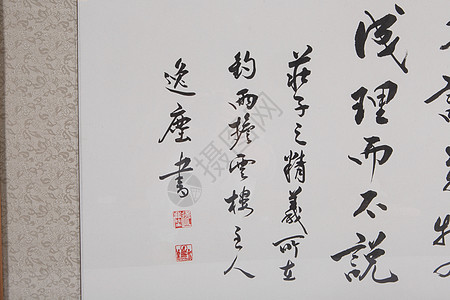 議萬物
成理而不説
莊子之精義所在
釣雨擔雲樓主人
逸塵書